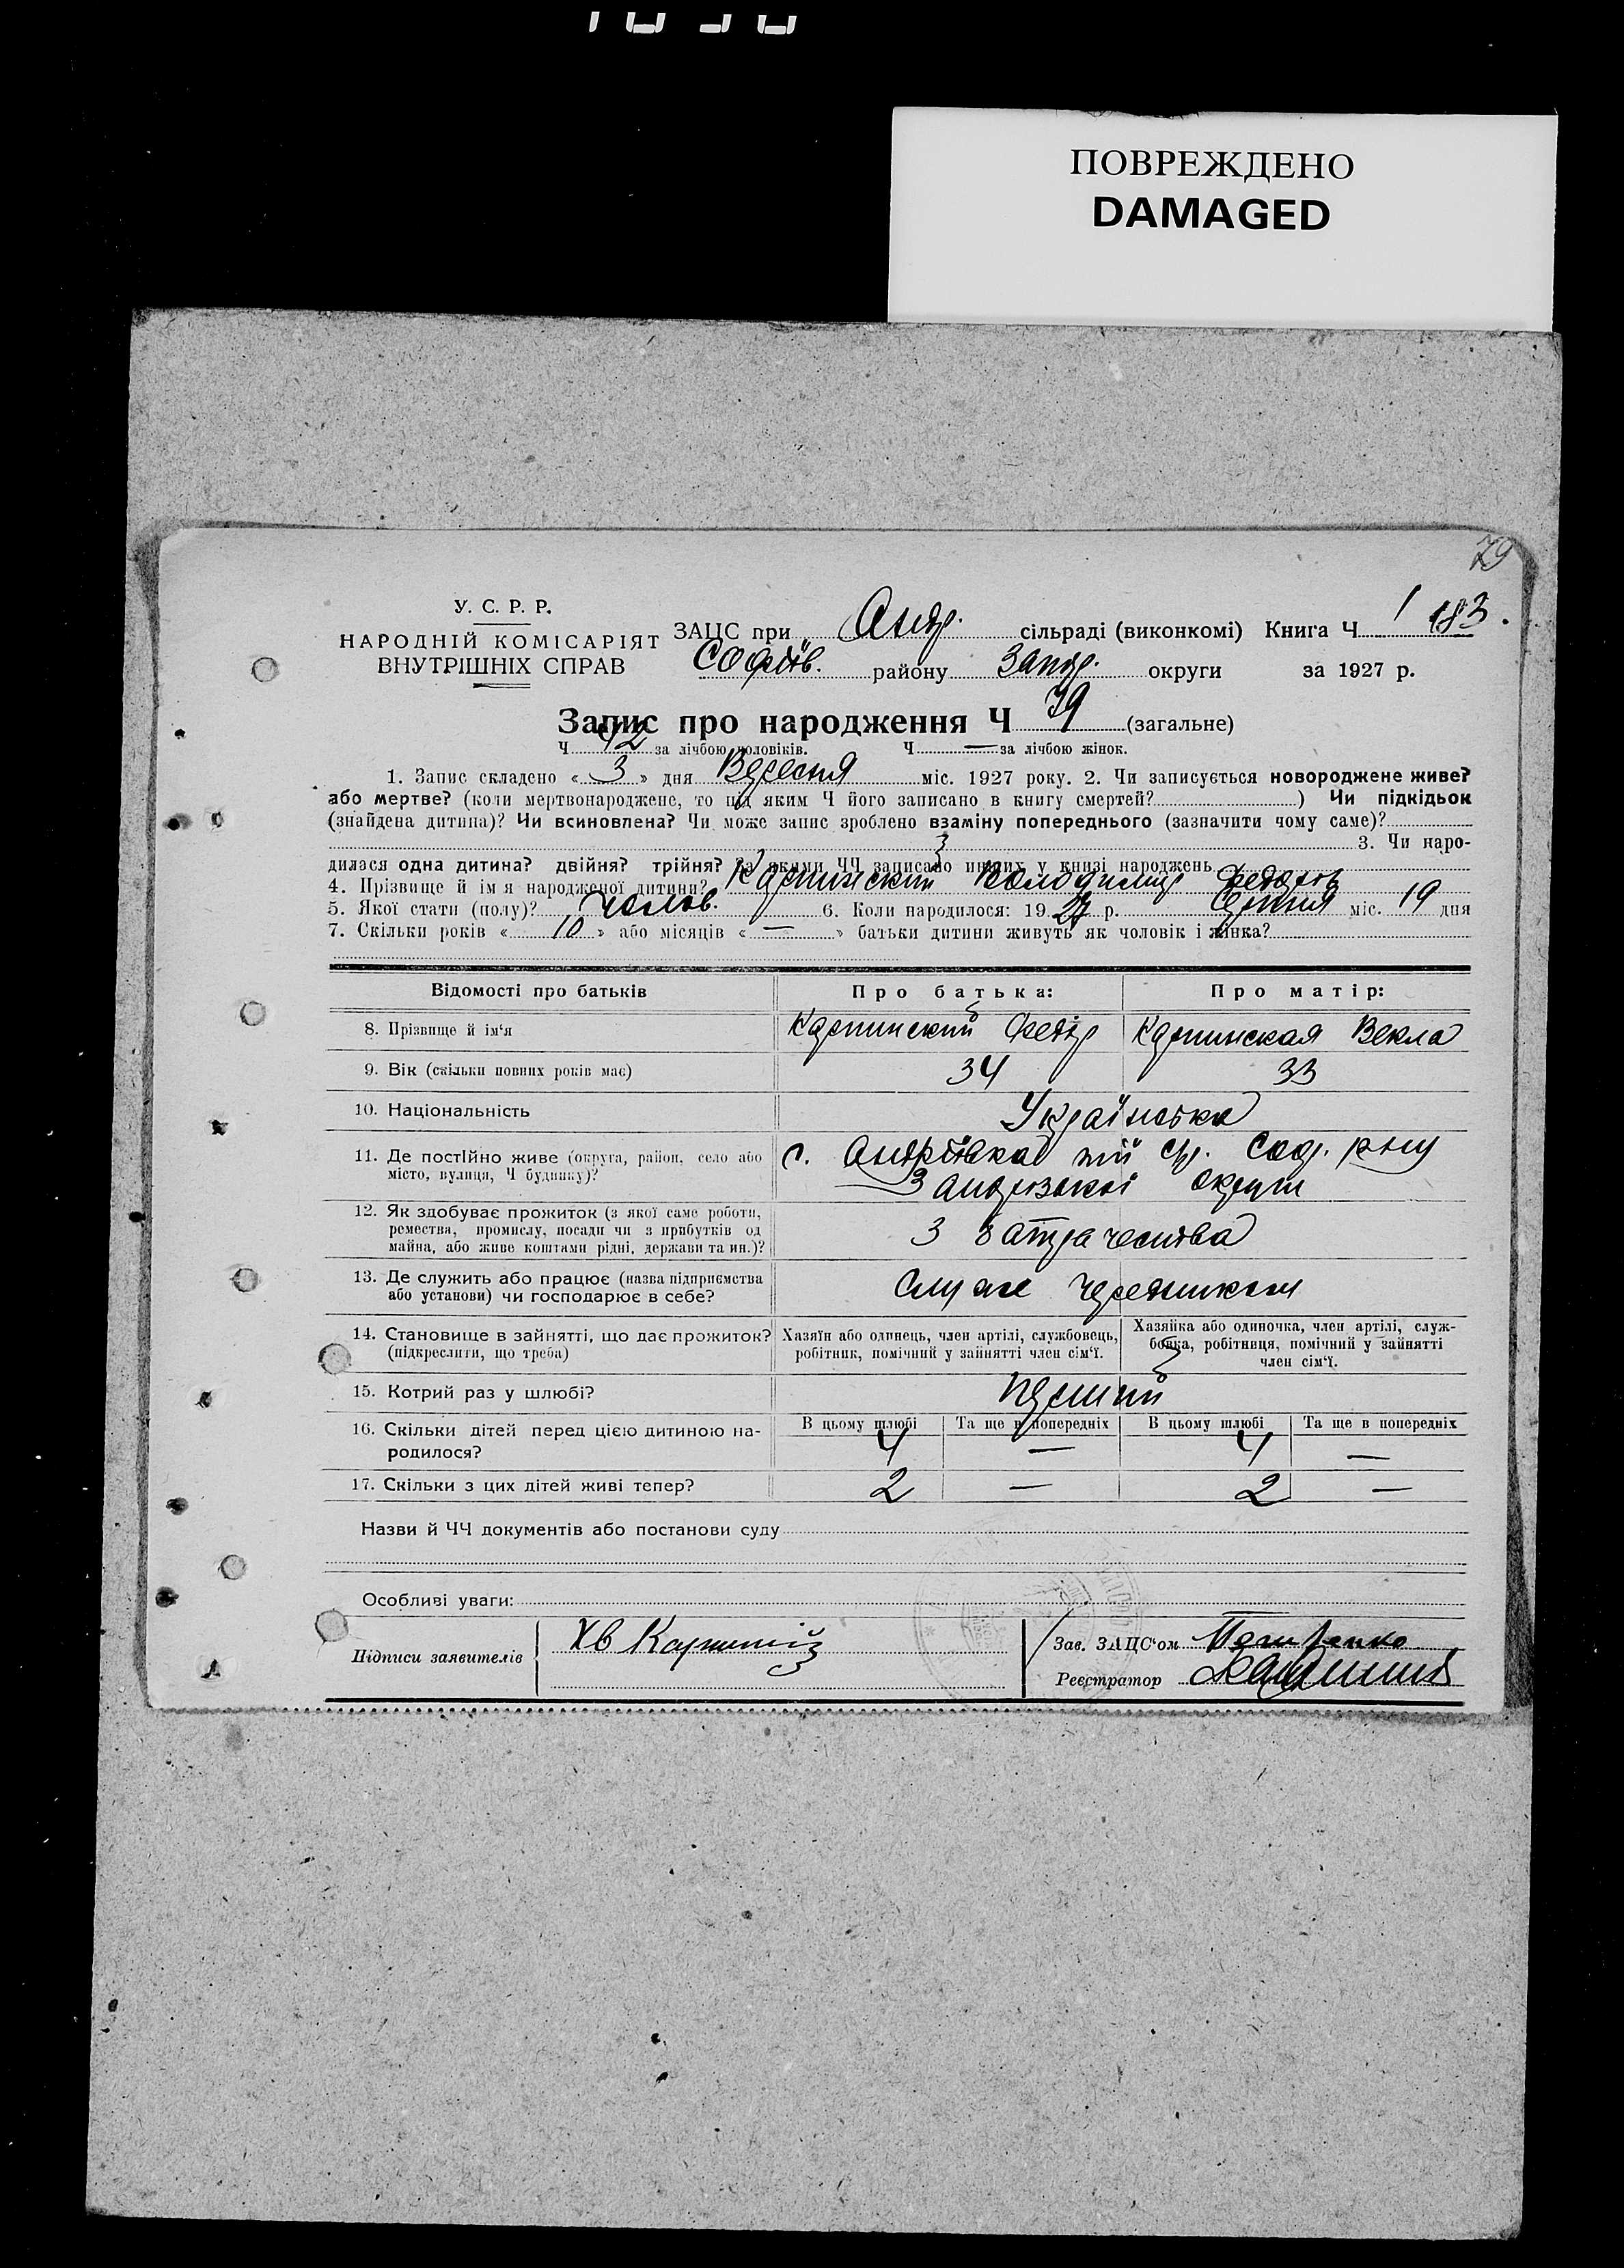 ПОВРЕЖДЕНО
DAMAGED
79
У. С. Р. Р.
НАРОДНІЙ КОМІСАРІЯТ
ВНУТРІШНІХ СПРАВ
ЗАЦС при Андр. сільраді (виконкомі) Книга Ч 1 183.
Софіїв. району Запор. округи за 1927 р.
Запис про народження Ч 79 (загальне)
Ч 42 за лічбою чоловіків. Ч — за лічбою жінок.
1. Запис складено « 3 » дня Вересня міс. 1927 року. 2. Чи записується новороджене живе?
або мертве? (коли мертвонароджене, то під яким Ч його записано в книгу смертей? ) Чи підкідьок
(знайдена дитина)? Чи всиновлена? Чи може запис зроблено взаміну попереднього (зазначити чому саме)?
3. Чи наро-
дилася одна дитина? двійня? трійня? За якими ЧЧ записано инших у книзі народжень
4. Прізвище й ім я народженої дитини? Карпинский Володимир Федоров
5. Якої стати (полу)? Чолов. 6. Коли народилося: 19 27 р. Серпня міс. 19 дня
7. Скільки років « 10 » або місяців « — » батьки дитини живуть як чоловік і жінка?
Відомості про батьків Про батька: Про матір:
8. Прізвище й ім‘я Карпинский Федір Карпинская Векла
9. Вік (скільки повних років має) 34 33
10. Національність Українська
11. Де постійно живе (округа, район, село або с. Андріївка Соф. р-ну
місто, вулиця, Ч будинку)? Запорізької округи
12. Як здобуває прожиток (з якої саме роботи,
ремества, промислу, посади чи з прибутків од З
майна, або живе коштами рідні, держави та ин.)?
13. Де служить або працює (назва підприємства Служе Чередником
або установи) чи господарює в себе?
14. Становище в зайнятті, що дає прожиток? Хазяїн або одинець, член артілі, службовець, Хазяйка або одиночка, член артілі, служ-
(підкреслити, що треба) робітник, помічний у зайнятті член сім‘ї. бовка, робітниця, помічний у зайнятті
член сім‘ї.
15. Котрий раз у шлюбі? Перший
16. Скільки дітей перед цією дитиною на- В цьому шлюбі Та ще в попередніх В цьому шлюбі Та ще в попередніх
родилося? 4 — 4 —
17. Скільки з цих дітей живі тепер? 2 — 2 —
Назви й ЧЧ документів або постанови суду
Особливі уваги:
Підписи заявителів Хв
Зав. ЗАЦС‘ом
Реєстратор